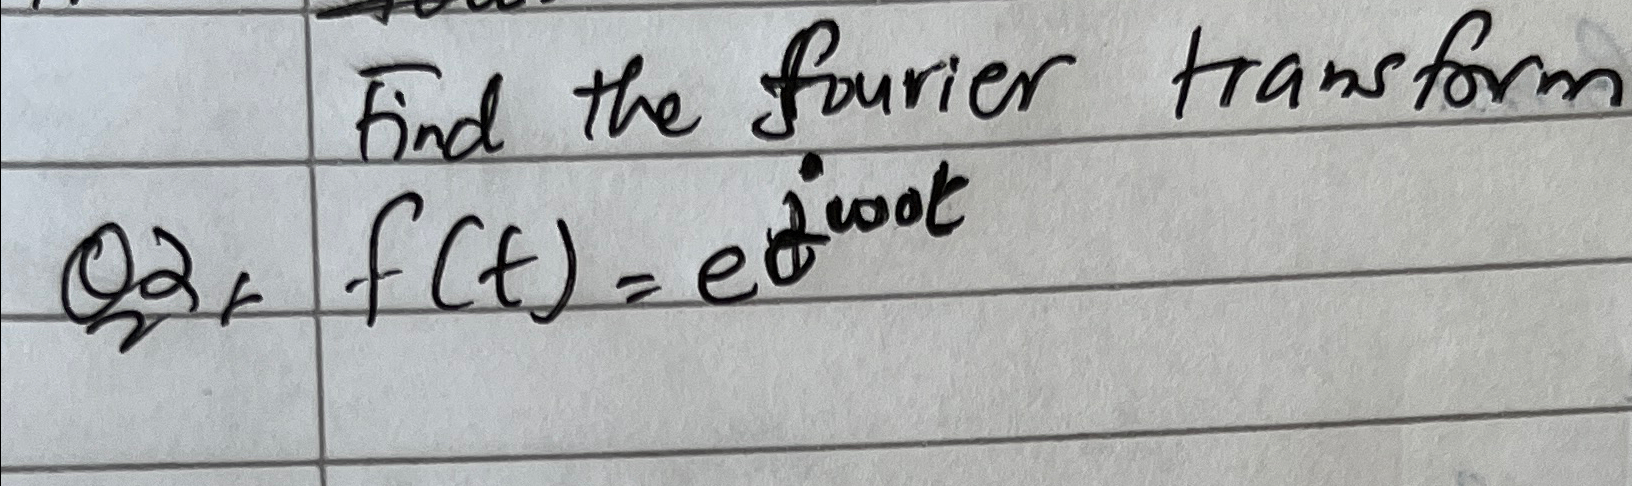 Find the fourier transform
Q2, f(t) = e^jωot